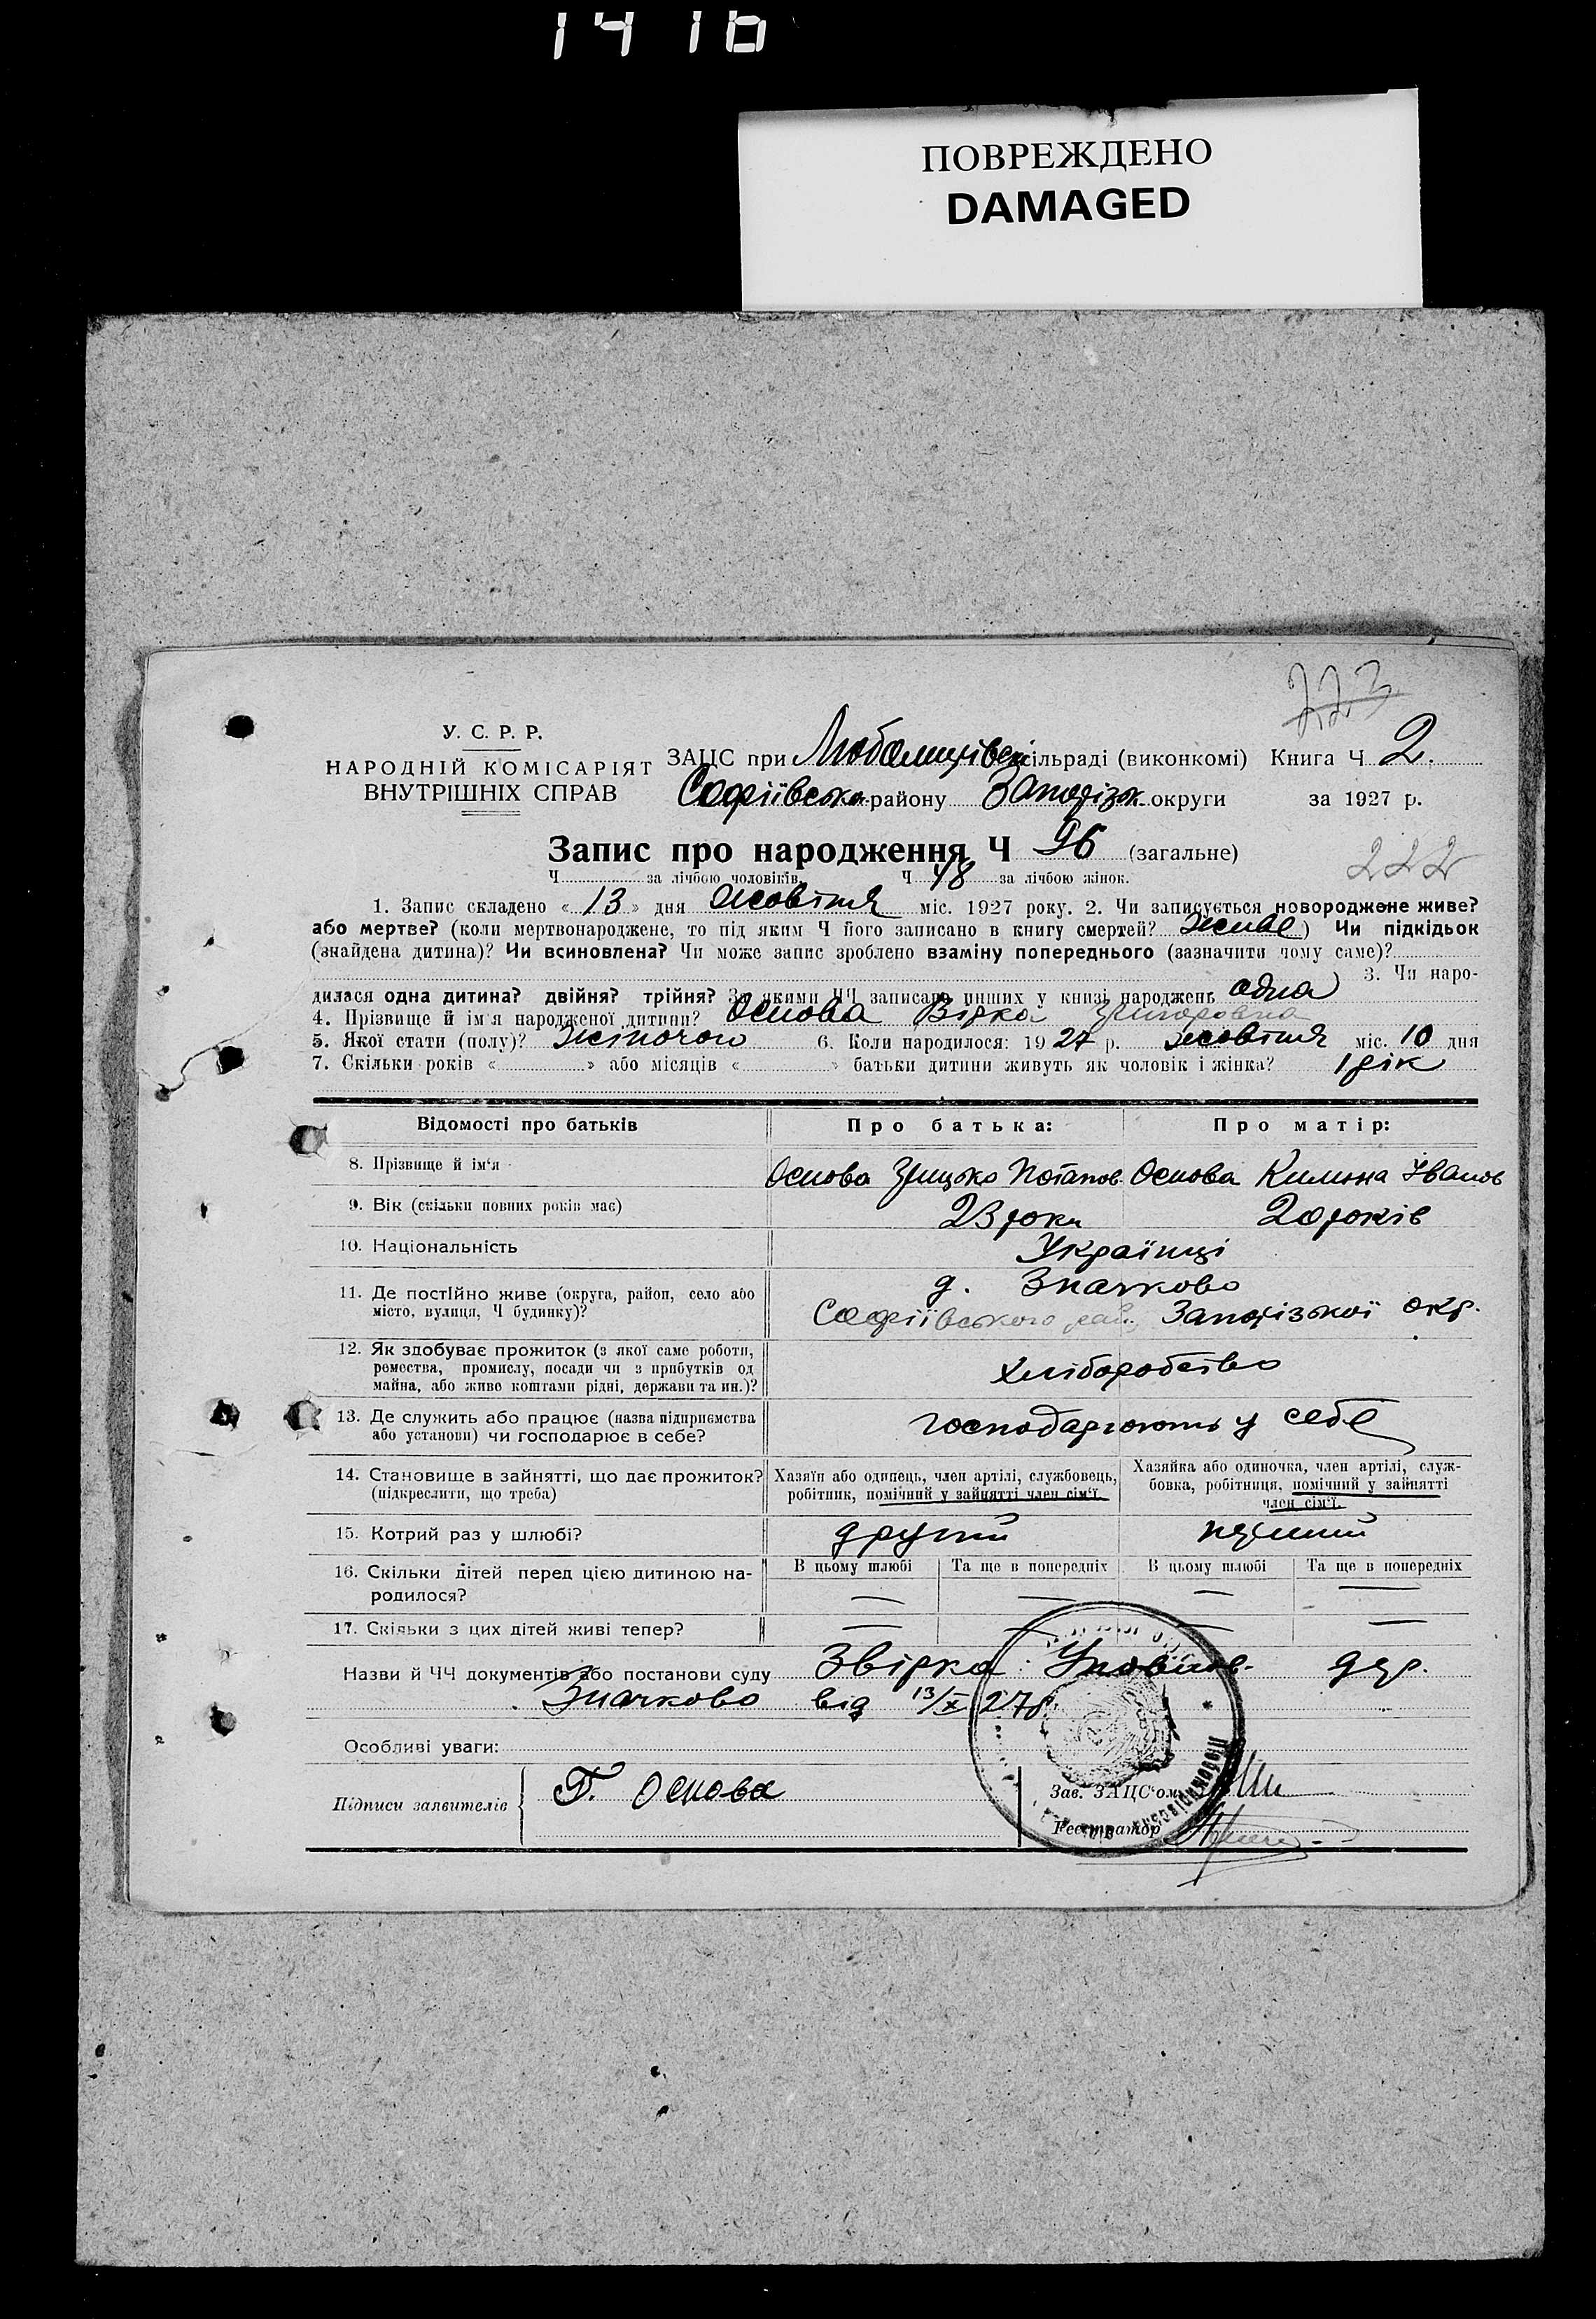 1416
ПОВРЕЖДЕНО
DAMAGED
223
У. С. Р. Р.
НАРОДНІЙ КОМІСАРІЯТ
ВНУТРІШНІХ СПРАВ
ЗАЦС при сільраді (виконкомі) Книга Ч 2.
Софіївсько району Запоріз. округи за 1927 р.
Запис про народження Ч 96 (загальне)
222
Ч за лічбою чоловіків. Ч 48 за лічбою жінок.
1. Запис складено « 13 » дня жовтня міс. 1927 року. 2. Чи записується новороджене живе?
або мертве? (коли мертвонароджене, то під яким Ч його записано в книгу смертей? живе) Чи підкідьок
(знайдена дитина)? Чи всиновлена? Чи може запис зроблено взаміну попереднього (зазначити чому саме)?
3. Чи наро-
дилася одна дитина? двійня? трійня? За якими ЧЧ записано инших у книзі народжень одна
4. Прізвище й ім'я народженої дитини? Основа Вірка Григоровна
5. Якої стати (полу)? жіночої 6. Коли народилося: 1927 р. жовтня міс. 10 дня
7. Скільки років « » або місяців « » батьки дитини живуть як чоловік і жінка? 1 рік
Відомості про батьків Про батька: Про матір:
8. Прізвище й ім'я Основа Грицько Потапов. Основа Килина Іванов
9. Вік (скільки повних років має) 23 роки 20 років
10. Національність Українці
11. Де постійно живе (округа, район, село або
місто, вулиця, Ч будинку)?
д. Значково
Софіївського рай. Запорізької окр.
12. Як здобуває прожиток (з якої саме роботи,
ремества, промислу, посади чи з прибутків од
майна, або живе коштами рідні, держави та ин.)?
хліборобство
13. Де служить або працює (назва підприємства
або установи) чи господарює в себе?
господарюють у себе
14. Становище в зайнятті, що дає прожиток?
(підкреслити, що треба)
Хазяїн або одинець, член артілі, службовець,
робітник, помічний у зайнятті член сім'ї.
Хазяйка або одиночка, член артілі, служ-
бовка, робітниця, помічний у зайнятті
член сім'ї.
15. Котрий раз у шлюбі? другий перший
16. Скільки дітей перед цією дитиною на-
родилося?
В цьому шлюбі Та ще в попередніх В цьому шлюбі Та ще в попередніх
— — — —
17. Скільки з цих дітей живі тепер? — — — —
Назви й ЧЧ документів або постанови суду Звірка Уповнов. дер.
Значково від 13/X 27р.
Особливі уваги:
Підписи заявителів Г. Основа
Зав. ЗАЦС'ом
Реєстратор